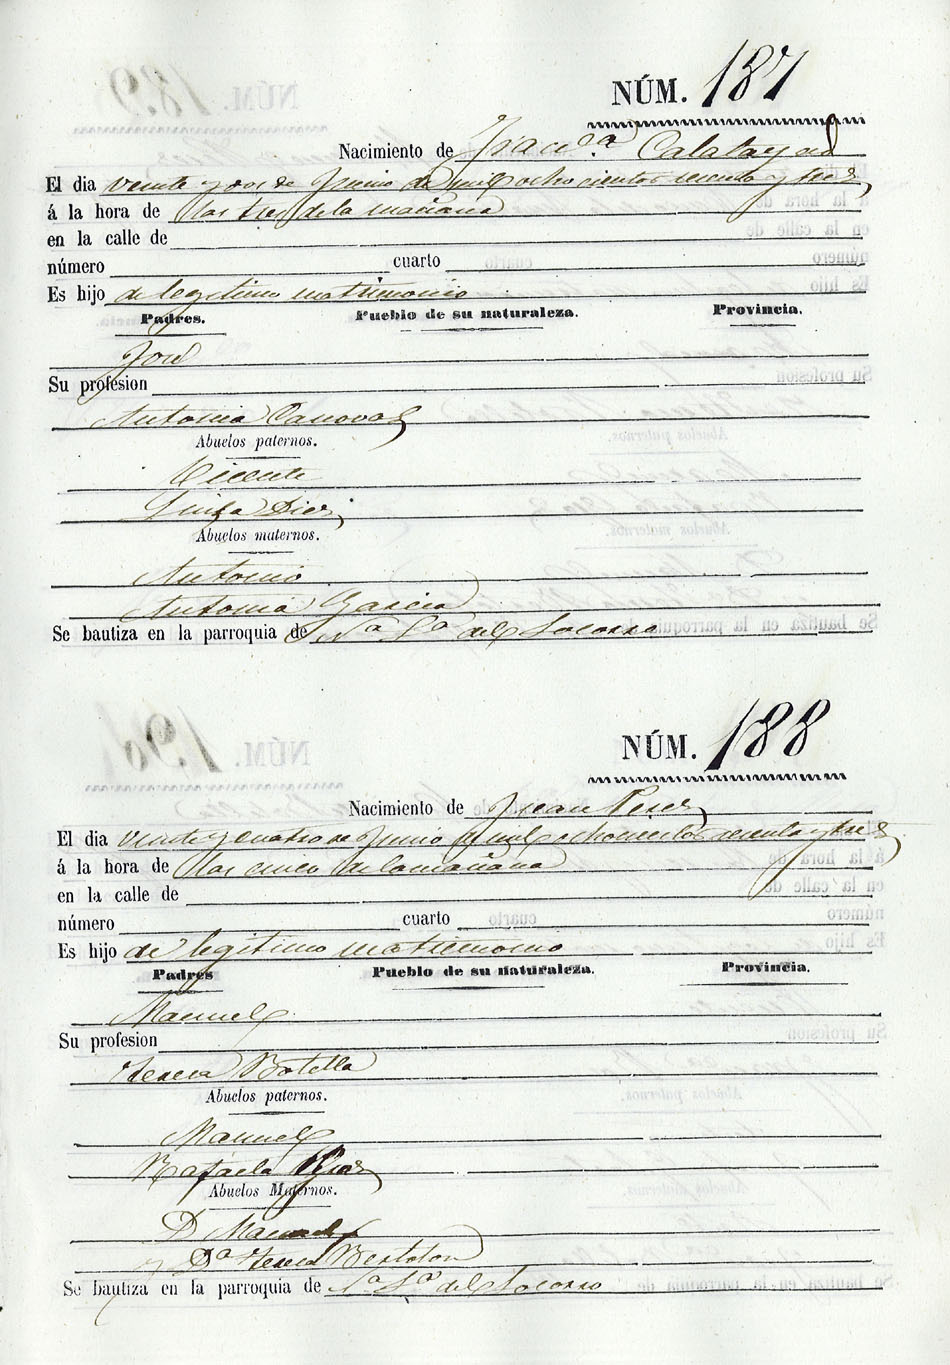 NÚM. 187
Nacimiento de Calatayud
El dia veinte y dos de Junio de mil ocho cientos sesenta y tres
á la hora de las tres de la mañana
en la calle de
número cuarto
Es hijo de legitimo matrimonio
Padres. Pueblo de su naturaleza. Provincia.
José
Su profesion
Antonia Canovas
Abuelos paternos.
Vicente
Luisa
Abuelos maternos.
Antonio
Antonia Garcia
Se bautiza en la parroquia de N.ª S.ª del Socorro
NÚM. 188
Nacimiento de Juan Perez
El dia veinte y cuatro de Junio de mil ochocientos sesenta y tres
á la hora de las cinco de la mañana
en la calle de
número cuarto
Es hijo de legitimo matrimonio
Padres Pueblo de su naturaleza. Provincia.
Manuel
Su profesion
Teresa Botella
Abuelos paternos.
Manuel
Rafaela
Abuelos Maternos.
D Manuel
D.ª Teresa
Se bautiza en la parroquia de N.ª S.ª del Socorro